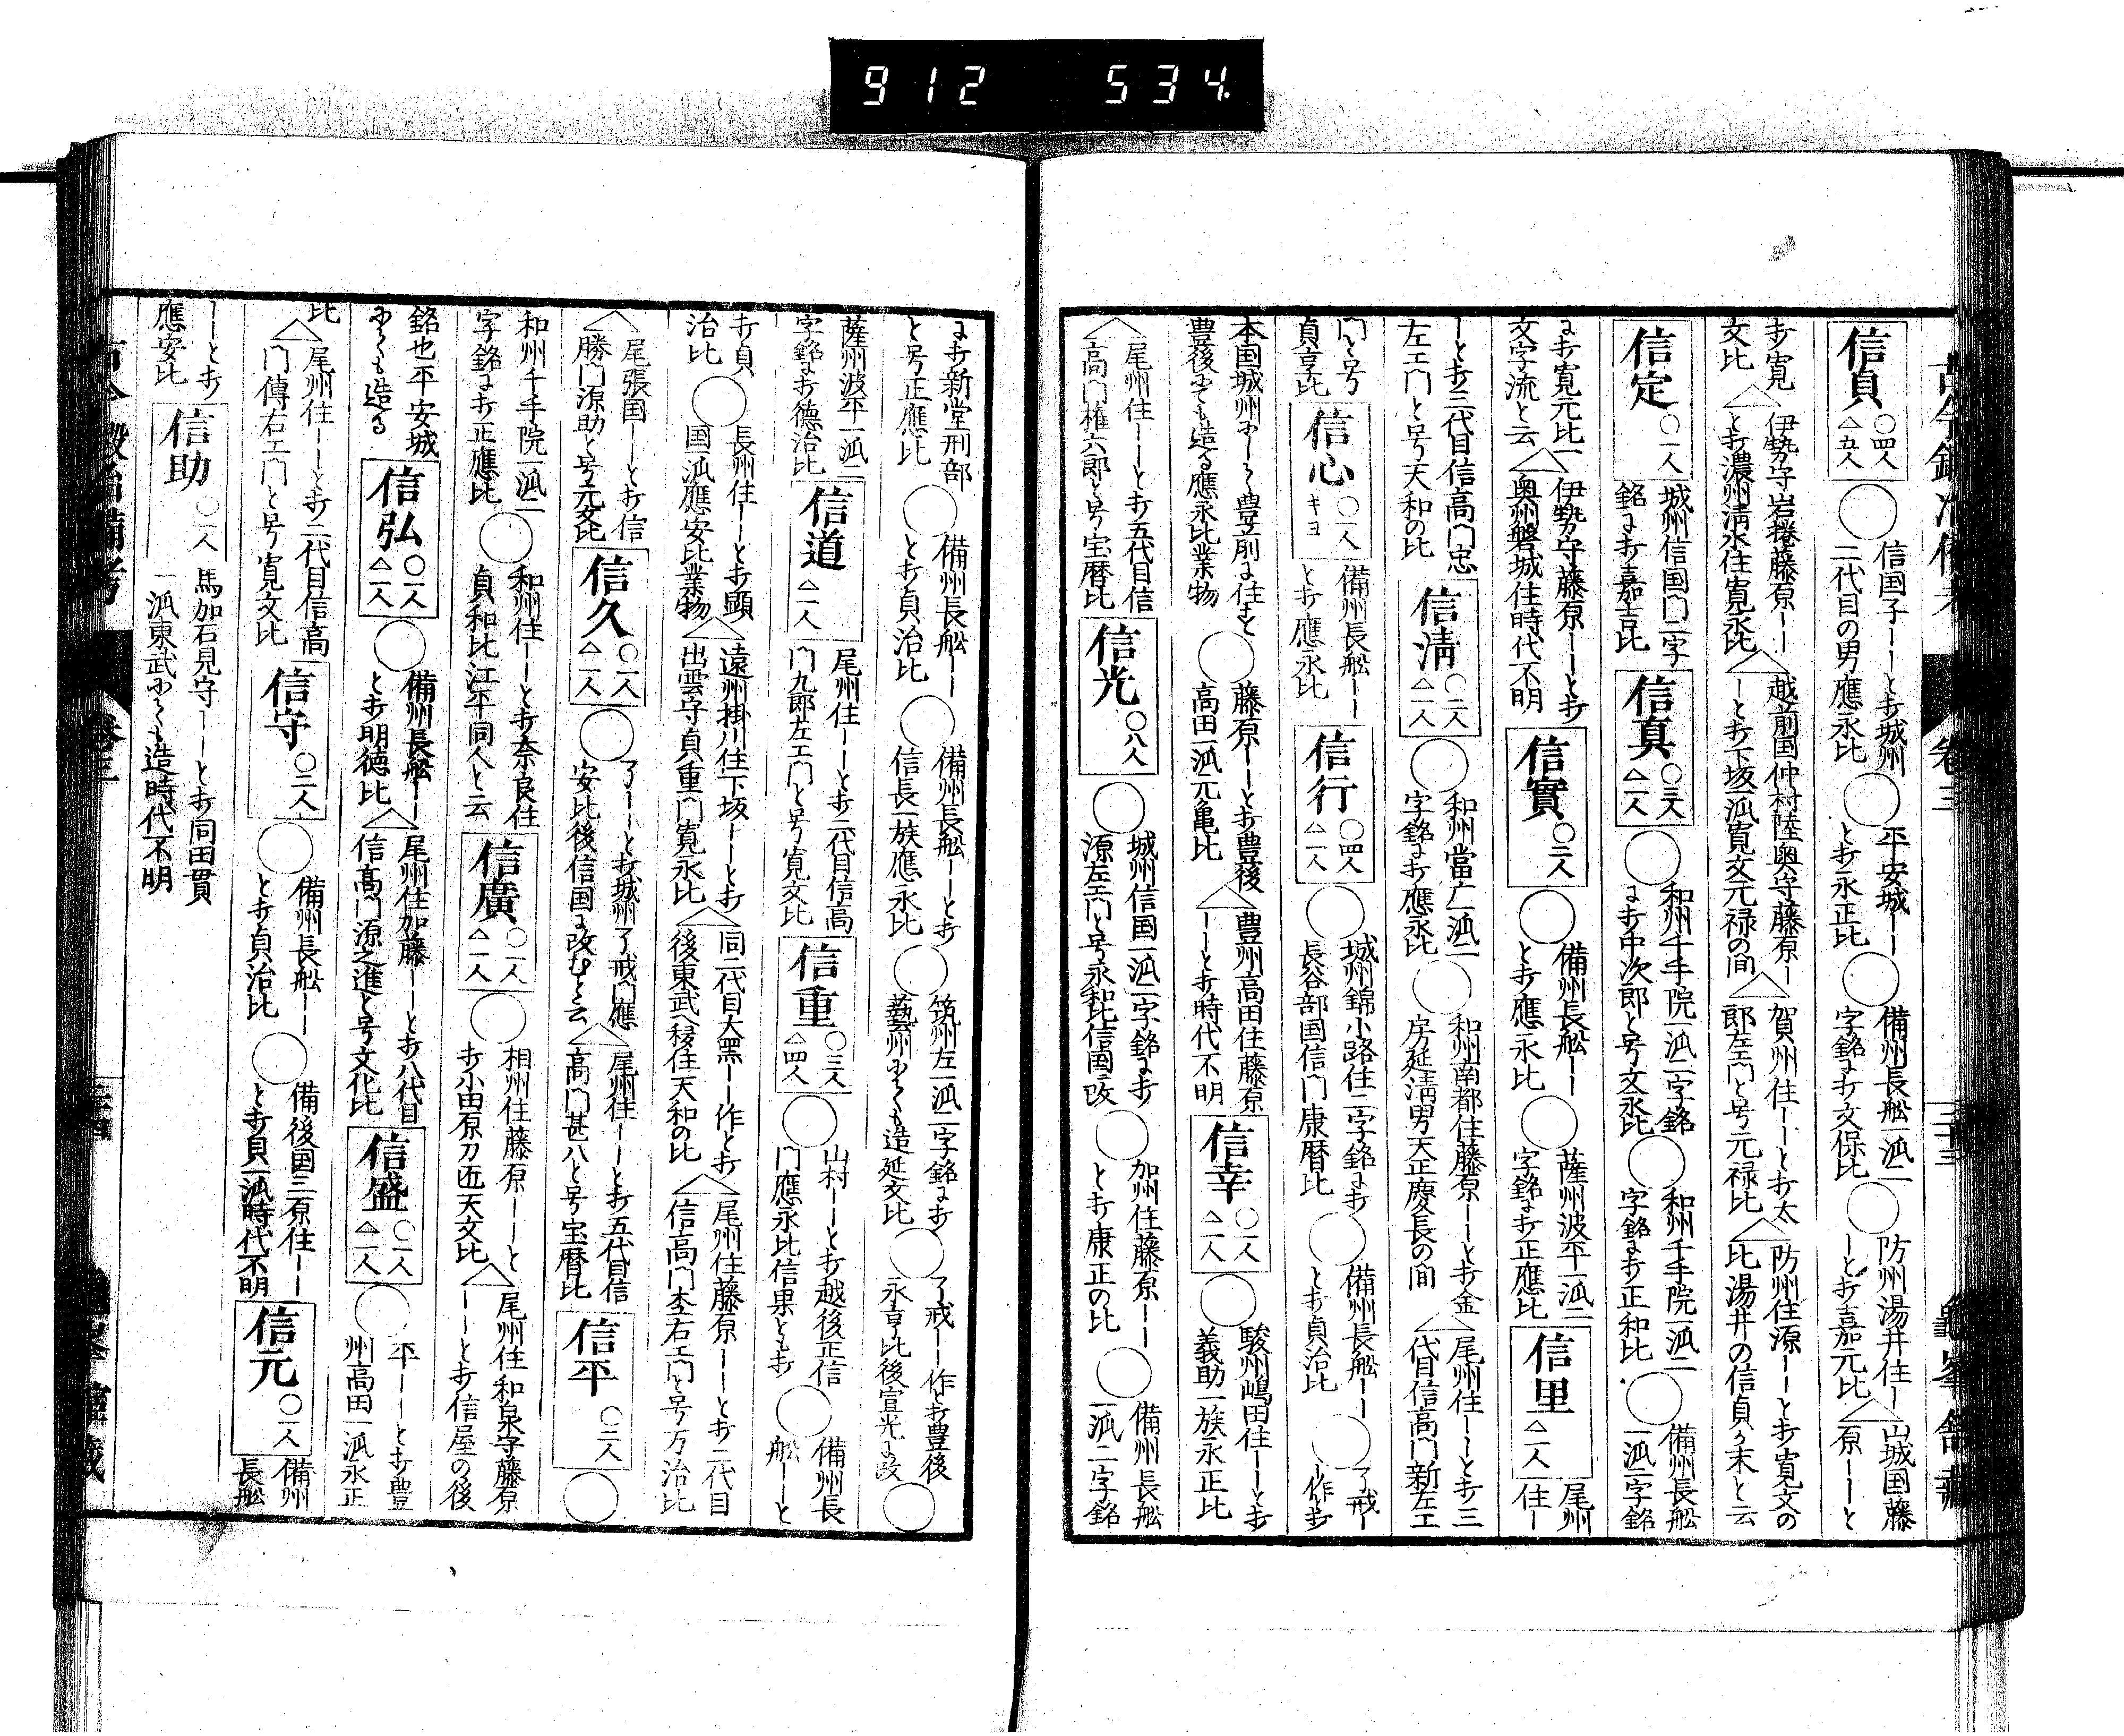 912 534.
信貞 ○四人 △五人 ○信国子ーーと打城州二代目の男應永比 ○平安城ーーと打永正比 ○備州長舩一派二字銘に打文保比 ○防州湯井住ーーと打嘉元比 △山城国藤原ーーと
打寛文比 △伊勢守岩捲藤原ーーと打濃州清水住寛永比 △越前国仲村陸奥守藤原ーーと打下坂派寛文元禄の間 △賀州住ーーと打太郎左エ門と号元禄比 △防州住源ーーと打寛文の比湯井の信貞か末と云
信定 ○一人 城州信国門二字銘に打嘉吉比 信真 ○三人 △二人 ○和州千手院一派二字銘に打中次郎と号文永比 ○和州千手院一派二字銘に打正和比 ○備州長舩一派二字銘
に打寛元比 △伊勢守藤原ーーと打文字流と云 △奥州磐城住時代不明 信實 ○二人 ○備州長舩ーーと打應永比 ○薩州波平一派二字銘に打正應比 信里 △二人 尾州住ー
ーと打二代目信高門忠左エ門と号天和の比 信清 ○二人 △一人 ○和州當广一派二字銘に打應永比 ○和州南都住藤原ーーと打金房延清男天正慶長の間 △尾州住ーーと打三代目信高門新左エ
門と号貞享比 信心 ○一人 キヨ 備州長舩ーーと打應永比 信行 ○四人 △一人 ○城州錦小路住二字銘に打長谷部国信門康暦比 ○備州長舩ーーと打貞治比 ○了戒ーー作と打
本国城州にーー豊前に住と豊後にても造る應永比業物 ○藤原ーーと打豊後高田一派元亀比 △豊州高田住藤原ーーと打時代不明 信幸 ○一人 △一人 ○駿州嶋田住ーーと打義助一族永正比
△尾州住ーーと打五代目信高門権六郎と号宝暦比 信光 ○八人 ○城州信国一派二字銘に打源左エ門と号永和比信国に改 ○加州住藤原ーーと打康正の比 ○備州長舩一派二字銘
に打新堂刑部と号正應比 ○備州長舩ーーと打貞治比 ○備州長舩ーーと打信長一族應永比 ○筑州左一派二字銘に打藝州にても造延文比 ○了戒ーー作と打豊後永享比後宣光に改 ○
薩州波平一派二字銘に打徳治比 信道 △一人 尾州住ーーと打二代目信高門九郎左エ門と号寛文比 信重 ○三人 △四人 ○山村ーーと打越後正信門應永比信果とも打 ○備州長舩ーーと
打貞治比 ○長州住ーーと打顕国一派應安比業物 △遠州掛川住下坂ーーと打出雲守貞重門寛永比 △同二代目大黒ーー作と打後東武へ移住天和の比 △尾州住藤原ーーと打二代目信高門杢右エ門と号万治比
△尾張国ーーと打信勝門源助と号元文比 信久 ○一人 △二人 ○了ーーと打城州了戒門應安比後信国に改むと云 △尾州住ーーと打五代目信高門甚八と号宝暦比 信平 ○二人 ○
和州千手院一派二字銘に打正應比 ○和州住ーーと打奈良住貞和比江平同人と云 信廣 ○一人 △一人 ○相州住藤原ーーと打小田原刀匠天文比 △尾州住和泉守藤原ーーと打信屋の後
銘也平安城にても造る 信弘 ○一人 △一人 ○備州長舩ーーと打明徳比 △尾州住加藤ーーと打八代目信高門源之進と号文化比 信盛 ○一人 △一人 ○平ーーと打豊州高田一派永正
比 △尾州住ーーと打二代目信高門傳右エ門と号寛文比 信守 ○二人 ○備州長舩ーーと打貞治比 ○備後国三原住ーーと打貝一派時代不明 信元 ○一人 備州長舩
ーーと打應安比 信助 ○一人 馬加石見守ーーと打同田貫一派東武にても造時代不明